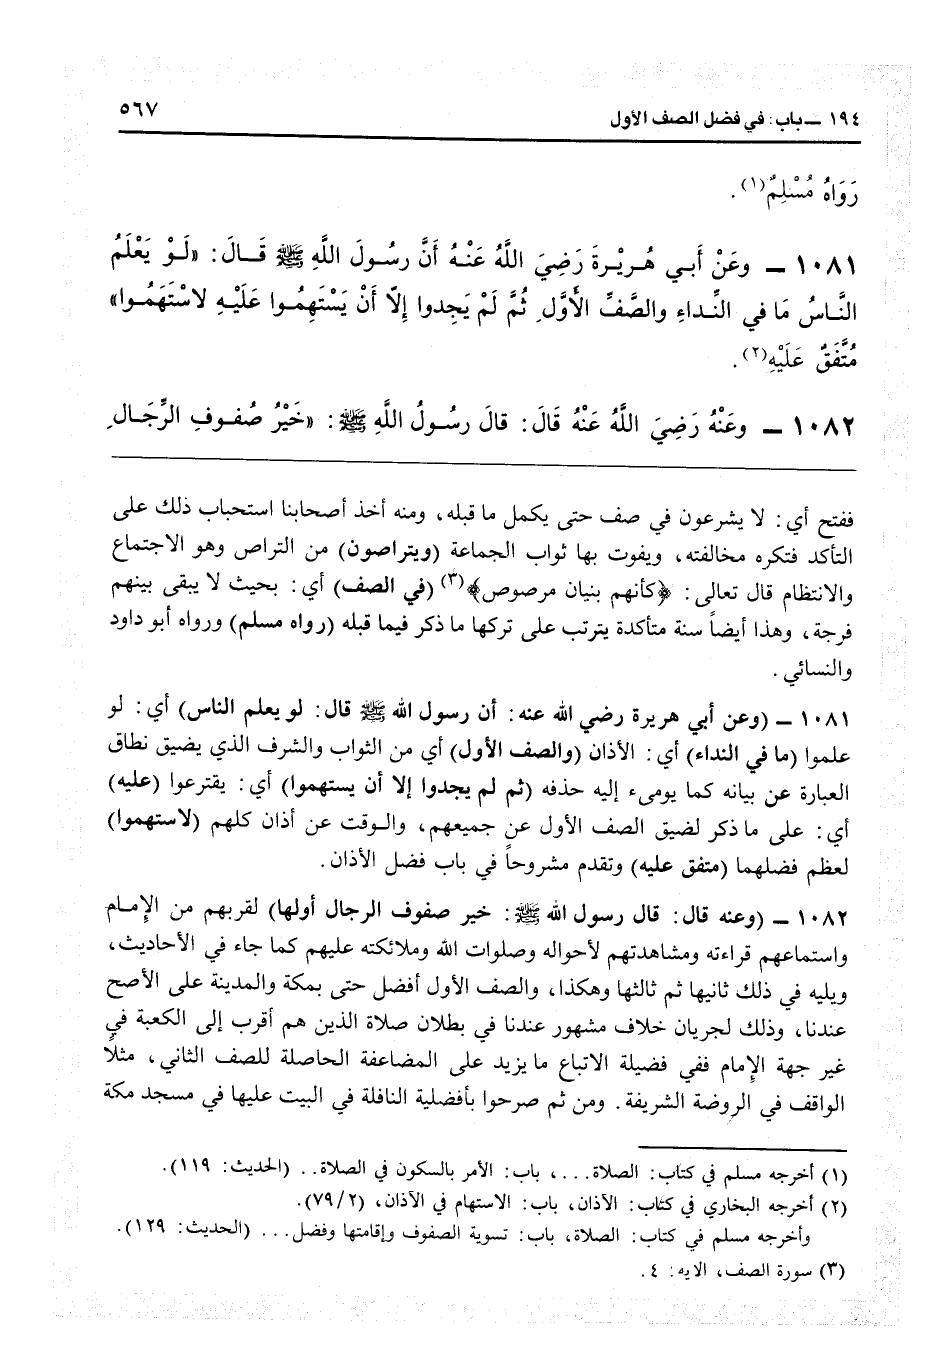 ١٩٤ ــ باب: في فضل الصف الأول
٥٦٧
رَوَاهُ مُسْلِمٌ(١).
١٠٨١ ــ وعَنْ أَبـي هُـريْـرةَ رَضِيَ اللَّهُ عَنْـهُ أَنَّ رسُـولَ اللَّهِ ﷺ قَـالَ: «لَـوْ يَعْلَمُ
النَّـاسُ مَا في النِّـداءِ والصَّفِّ الأَوَّلِ ثُمَّ لَمْ يَجِدوا إلَّا أَنْ يَسْتَهِمُـوا عَلَيْـهِ لاسْتَهَمُـوا»
مُتَّفَقٌ عَلَيْهِ(٢).
١٠٨٢ ــ وعَنْهُ رَضِيَ اللَّهُ عَنْهُ قَالَ: قالَ رسُـولُ اللَّهِ ﷺ: «خَيْرُ صُفـوفِ الرِّجَـالِ
ففتح أي: لا يشرعون في صف حتى يكمل ما قبله، ومنه أخذ أصحابنا استحباب ذلك على
التأكد فتكره مخالفته، ويفوت بها ثواب الجماعة (ويتراصون) من التراص وهو الاجتماع
والانتظام قال تعالى: ﴿كأنهم بنيان مرصوص﴾(٣) (في الصف) أي: بحيث لا يبقى بينهم
فرجة، وهذا أيضاً سنة متأكدة يترتب على تركها ما ذكر فيما قبله (رواه مسلم) ورواه أبو داود
والنسائي.
١٠٨١ ــ (وعن أبي هريرة رضي الله عنه: أن رسول الله ﷺ قال: لو يعلم الناس) أي: لو
علموا (ما في النداء) أي: الأذان (والصف الأول) أي من الثواب والشرف الذي يضيق نطاق
العبارة عن بيانه كما يومىء إليه حذفه (ثم لم يجدوا إلا أن يستهموا) أي: يقترعوا (عليه)
أي: على ما ذكر لضيق الصف الأول عن جميعهم، والـوقت عن أذان كلهم (لاستهموا)
لعظم فضلهما (متفق عليه) وتقدم مشروحاً في باب فضل الأذان.
١٠٨٢ ــ (وعنه قال: قال رسول الله ﷺ: خير صفوف الرجال أولها) لقربهم من الإمـام
واستماعهم قراءته ومشاهدتهم لأحواله وصلوات الله وملائكته عليهم كما جاء في الأحاديث،
ويليه في ذلك ثانيها ثم ثالثها وهكذا، والصف الأول أفضل حتى بمكة والمدينة على الأصح
عندنا، وذلك لجريان خلاف مشهور عندنا في بطلان صلاة الذين هم أقرب إلى الكعبة في
غير جهة الإمام ففي فضيلة الاتباع ما يزيد على المضاعفة الحاصلة للصف الثاني، مثلاً
الواقف في الروضة الشريفة. ومن ثم صرحوا بأفضلية النافلة في البيت عليها في مسجد مكة
(١) أخرجه مسلم في كتاب: الصلاة...، باب: الأمر بالسكون في الصلاة.. (الحديث: ١١٩).
(٢) أخرجه البخاري في كتاب: الأذان، باب: الاستهام في الآذان، (٧٩/٢).
وأخرجه مسلم في كتاب: الصلاة، باب: تسوية الصفوف وإقامتها وفضل... (الحديث: ١٢٩).
(٣) سورة الصف، الايه: ٤.